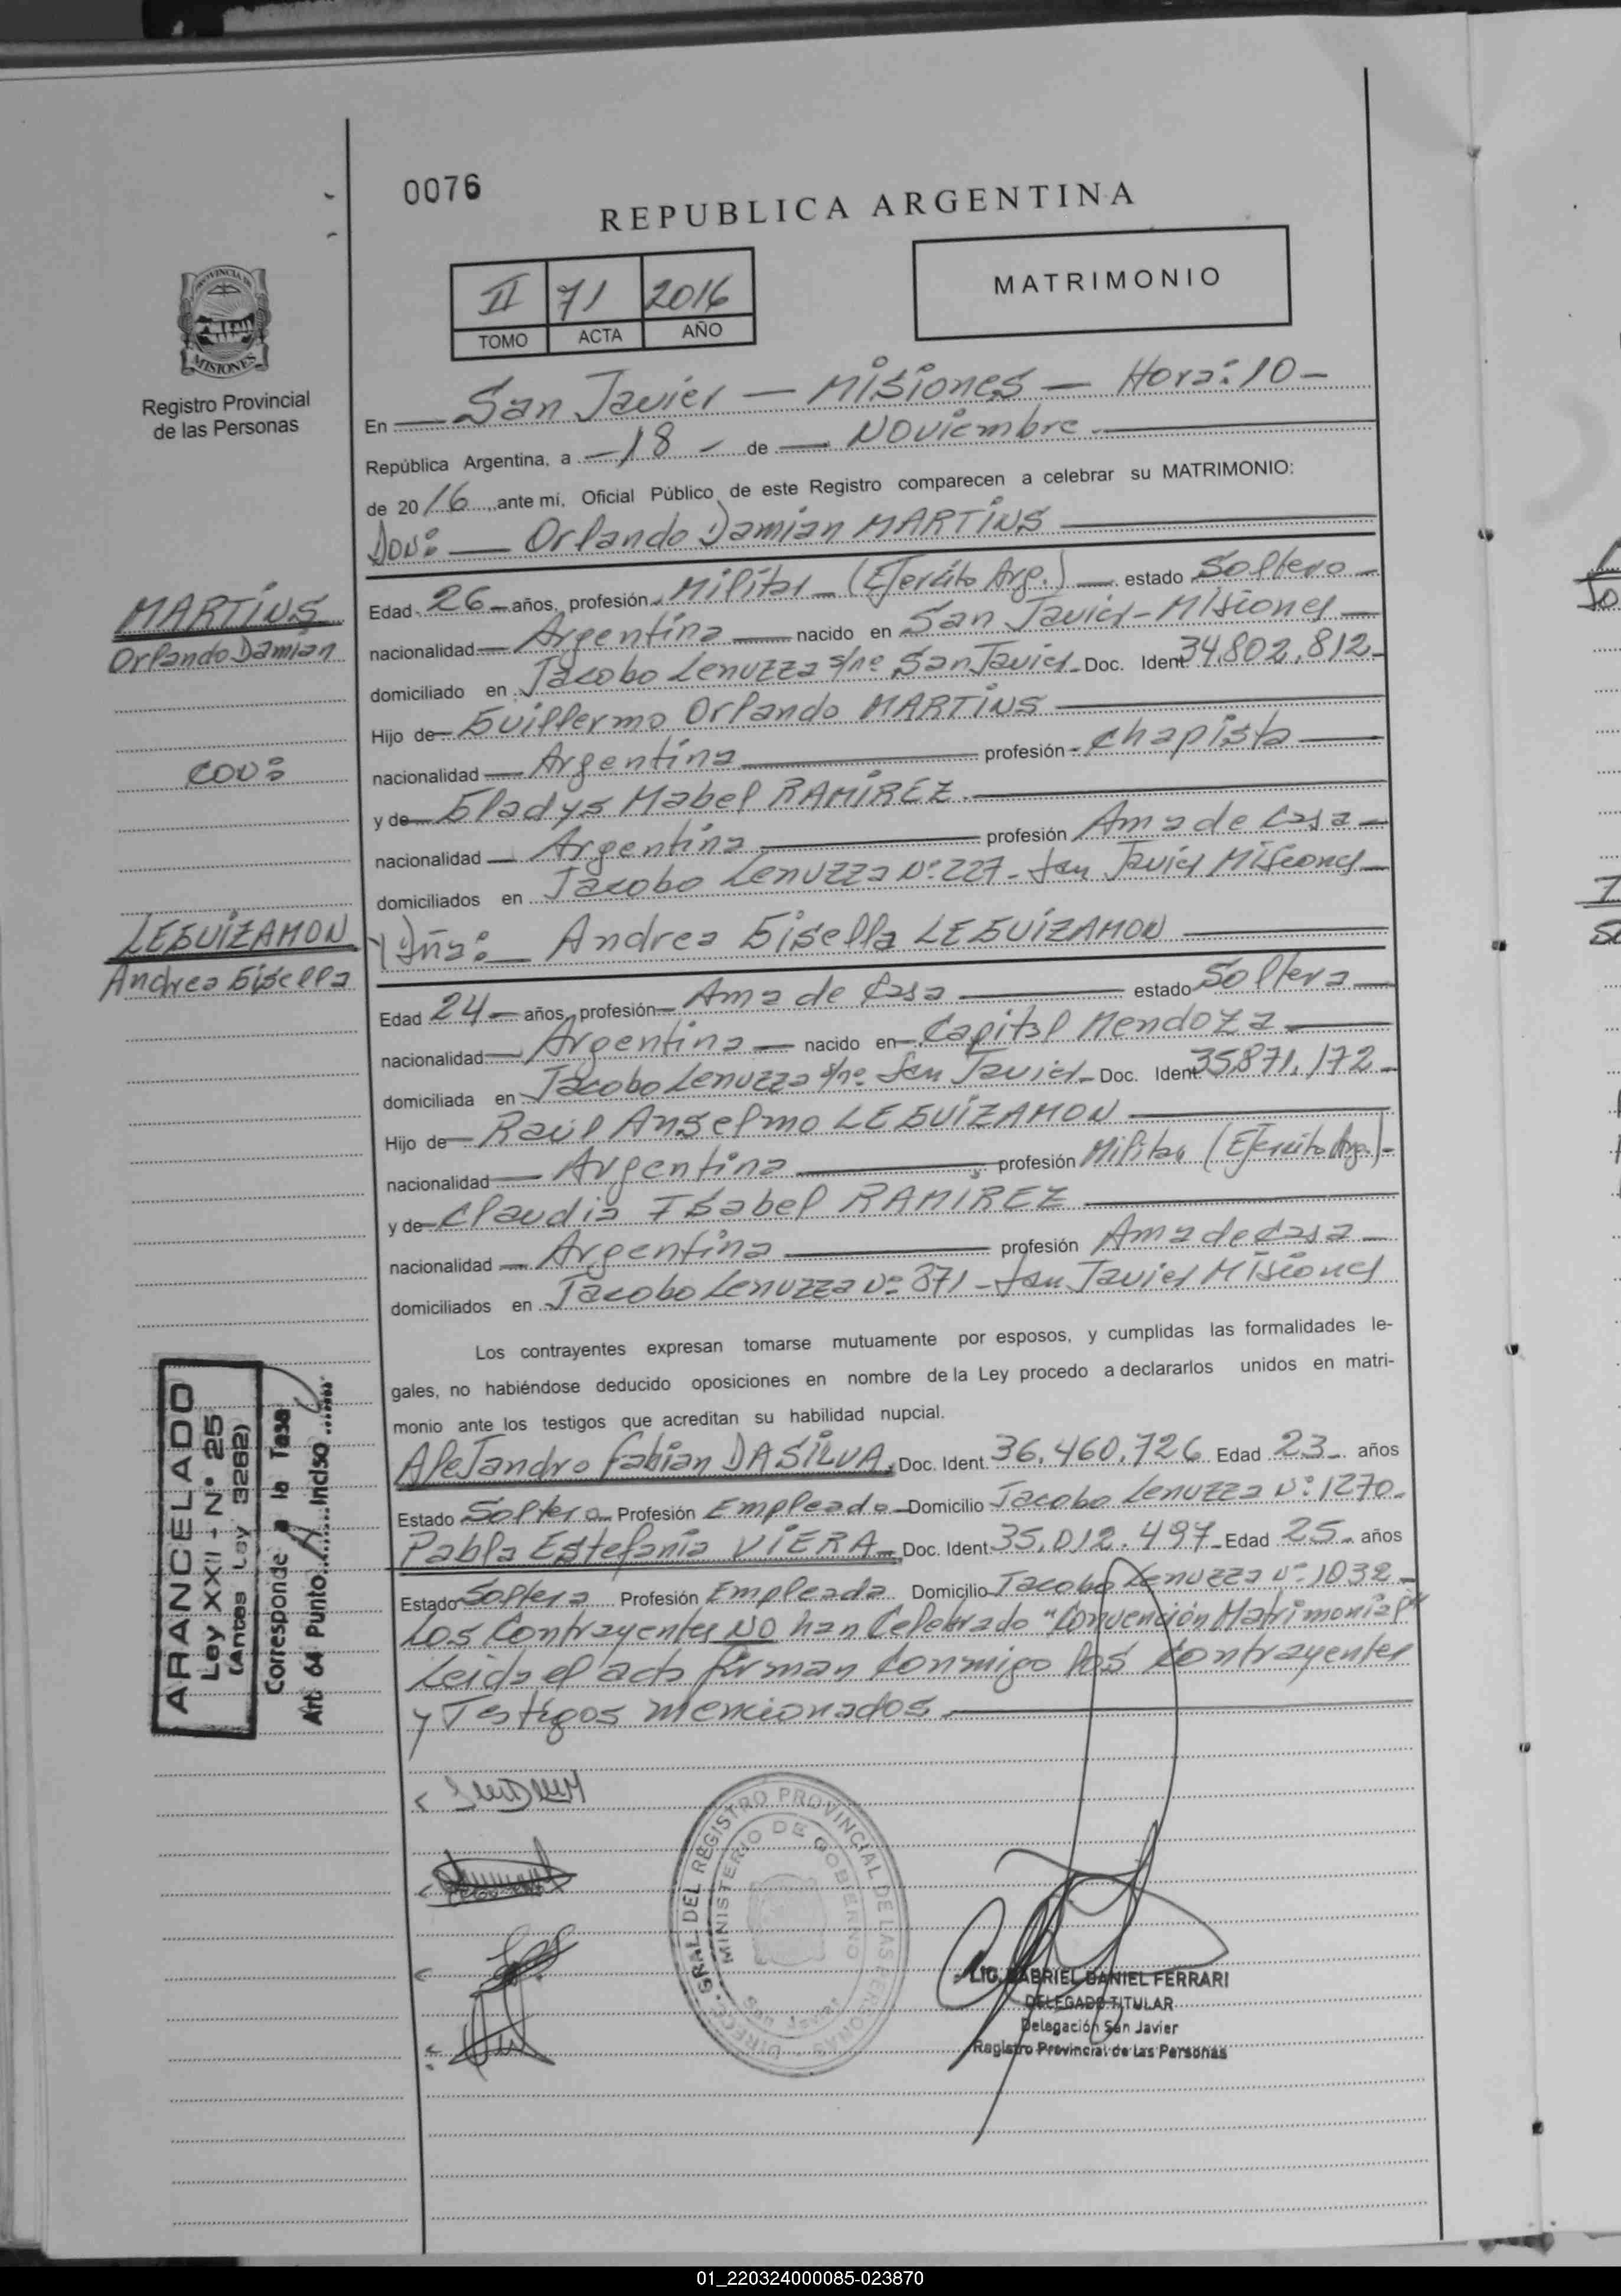 0076
REPUBLICA ARGENTINA
II 71 2016
TOMO ACTA AÑO
MATRIMONIO
PROVINCIA DE
MISIONES
Registro Provincial
de las Personas
En — San Javier — Misiones — Hora: 10 -
República Argentina, a - 18 - de — Noviembre.
de 2016, ante mí, Oficial Público de este Registro comparecen a celebrar su MATRIMONIO:
Don: — Orlando Damian MARTINS
Edad 26 - años, profesión Militar - (Ejercito Arg.) — estado Soltero -
nacionalidad — Argentina — nacido en San Javier - Misiones -
domiciliado en Jacobo Lenuzza s/nº San Javier - Doc. Ident 34.802.812 -
Hijo de Guillermo Orlando MARTINS
nacionalidad — Argentina profesión - Chapista
y de Gladys Mabel RAMIREZ.
nacionalidad — Argentina profesión Ama de Casa -
domiciliados en Jacobo Lenuzza Nº 227 - San Javier Misiones -
MARTINS
Orlando Damian
con:
LEGUIZAMON
Andrea Gisella
y Dña: — Andrea Gisella LEGUIZAMON
Edad 24 - años, profesión - Ama de Casa estado Soltera -
nacionalidad — Argentina — nacido en - Capital Mendoza
domiciliada en Jacobo Lenuzza s/nº San Javier - Doc. Ident 35.871.172 -
Hijo de Raúl Anselmo LEGUIZAMON
nacionalidad — Argentina profesión Militar (Ejercito Arg.) -
y de Claudia Isabel RAMIREZ
nacionalidad — Argentina profesión Ama de Casa -
domiciliados en Jacobo Lenuzza Nº 871 - San Javier Misiones
Los contrayentes expresan tomarse mutuamente por esposos, y cumplidas las formalidades le-
gales, no habiéndose deducido oposiciones en nombre de la Ley procedo a declararlos unidos en matri-
monio ante los testigos que acreditan su habilidad nupcial.
Alejandro Fabian DASILVA. Doc. Ident. 36.460.726 Edad 23 - años
Estado Soltero Profesión Empleado - Domicilio Jacobo Lenuzza Nº 1270.
Pabla Estefania VIERA - Doc. Ident 35.012.497 - Edad 25 - años
Estado Soltera Profesión Empleada Domicilio Jacobo Lenuzza Nº 1032 -
Los Contrayentes NO han Celebrado "Convención Matrimonial"
Leida el acta firman Conmigo los Contrayentes
y Testigos mencionados.
ARANCELADO
Ley XXII - N° 25
(Antes Ley 3262)
Corresponde a la Tasa
Art. 64 Punto A Inciso
DIRECC. GRAL. DEL REGISTRO PROVINCIAL DE LAS PERSONAS
MINISTERIO DE GOBIERNO
San Javier
LIC. GABRIEL DANIEL FERRARI
DELEGADO TITULAR
Delegación San Javier
Registro Provincial de las Personas
01_220324000085-023870